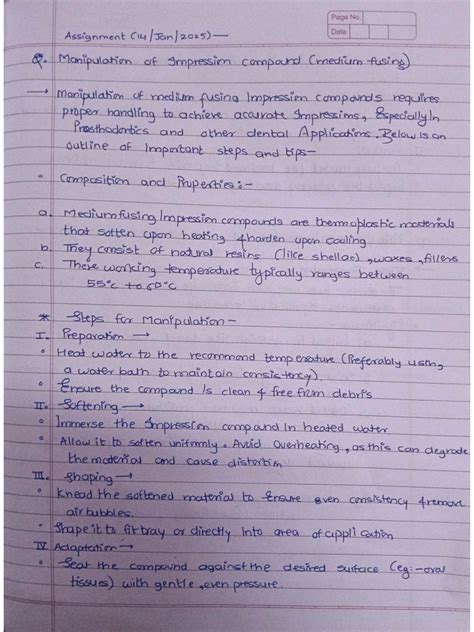 Page No.
Date
Assignment (14/Jan/2025)—
Q. Manipulation of Impression compound (medium fusing)
→ Manipulation of medium fusing Impression compounds requires
proper handling to achieve accurate Impressions, Especially In
Prosthodontics and other dental Applications. Below Is an
outline of Important steps and tips—
• Composition and Properties:-
a. Medium fusing Impression compounds are thermoplastic materials
that soften upon heating & harden upon cooling
b. They consist of natural resins (like shellac), waxes, fillers
c. There working temperature typically ranges between
55°c to 60°c
* Steps for Manipulation—
I. Preparation →
• Heat water to the recommond temperature (Preferably using
a water bath to maintain consistency).
• Ensure the compound Is clean & free from debris
II. Softening →
• Immerse the Impression compound In heated water
• Allow it to soften uniformly. Avoid Overheating, as this can degrade
the material and cause distortion
III. Shaping →
• Knead the softened material to Ensure even consistency & remove
air bubbles.
• Shape it to fit tray or directly Into area of application
IV. Adaptation →
• Seat the compound against the desired surface (eg:-oral
tissues) with gentle, even pressure.